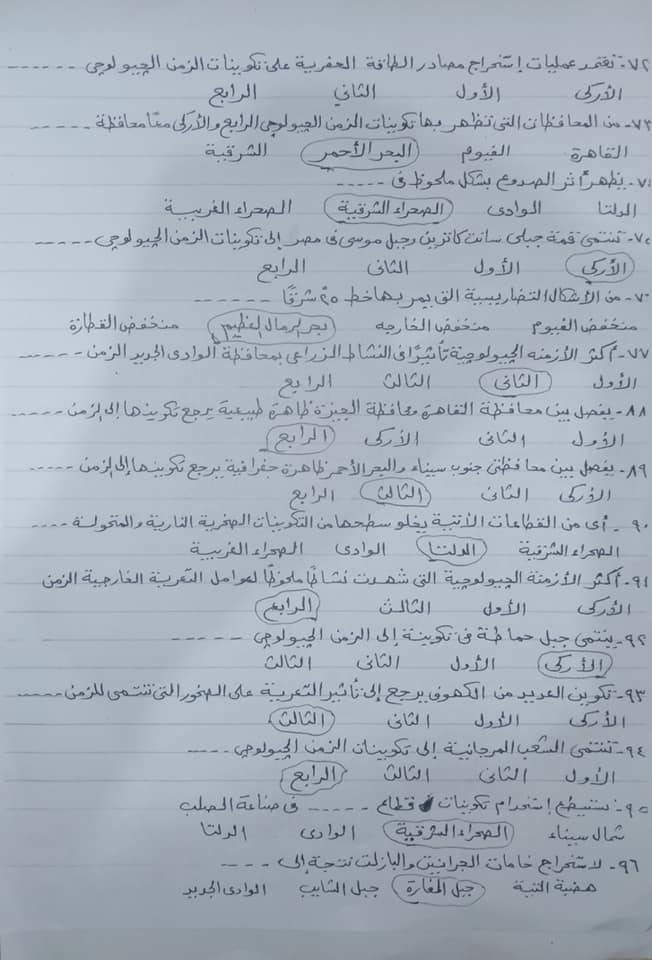 ٧٢- تعتمد عمليات إستخراج مصادر الطاقة الحفرية على تكوينات الزمن الچيولوجي -----
الأركى الأول الثاني الرابع
٧٣- من المحافظات التى تظهر بها تكوينات الزمن الچيولوجى الرابع والأركى معًا محافظة -----
القاهرة الفيوم البحر الأحمر الشرقية
يظهر أثر الصدوع بشكل ملحوظ فى -----
الدلتا الوادى الصحراء الشرقية الصحراء الغربية
تنتمى قمة جبلى سانت كاترين وجبل موسى فى مصر إلى تكوينات الزمن الچيولوجى -----
الأركي الأول الثانى الرابع
من الأشكال التضاريسية التى يمر بها خط ٢٥ شرقًا ------
منخفض الفيوم منخفض الخارجه بحر الرمال العظيم منخفض القطارة
٧٧- أكثر الأزمنه الچيولوجية تأثيرًا فى النشاط الزراعى بمحافظة الوادى الجديد الزمن -----
الأول الثانى الثالث الرابع
٨٨- يفصل بين محافظة القاهرة ومحافظة الجيزة ظاهرة طبيعية يرجع تكوينها إلى الزمن -----
الأول الثانى الأركى الرابع
٨٩- يفصل بين محافظتى جنوب سيناء والبحر الأحمر ظاهرة جغرافية يرجع تكوينها إلى الزمن -----
الأركى الثانى الثالث الرابع
٩٠- أى من القطاعات الأتية يخلو سطحها من التكوينات الصخرية النارية والمتحولة ----
الصحراء الشرقية الدلتا الوادى الصحراء الغربية
٩١- أكثر الأزمنة الچيولوجية التى شهدت نشاطًا ملحوظًا لعوامل التعرية الخارجية الزمن
الأركى الأول الثالث الرابع
٩٢- ينتمى جبل حماطة فى تكوينة إلى الزمن الچيولوجى -----
الأركى الأول الثانى الثالث
٩٣- تكوين العديد من الكهوف يرجع إلى تأثير التعرية على الصخور التى تنتمى للزمن -----
الأركى الأول الثانى الثالث
٩٤- تنتمى الشعب المرجانية إلى تكوينات الزمن الچيولوجى ----
الأول الثانى الثالث الرابع
٩٥- نستطيع إستخدام تكوينات قطاع ----- فى صناعة الصلب
شمال سيناء الصحراء الشرقية الوادى الدلتا
٩٦- لاستخراج خامات الجرانيت والبازلت نتجة إلى ----
هضبة التية جبل المغارة جبل الشايب الوادى الجديد